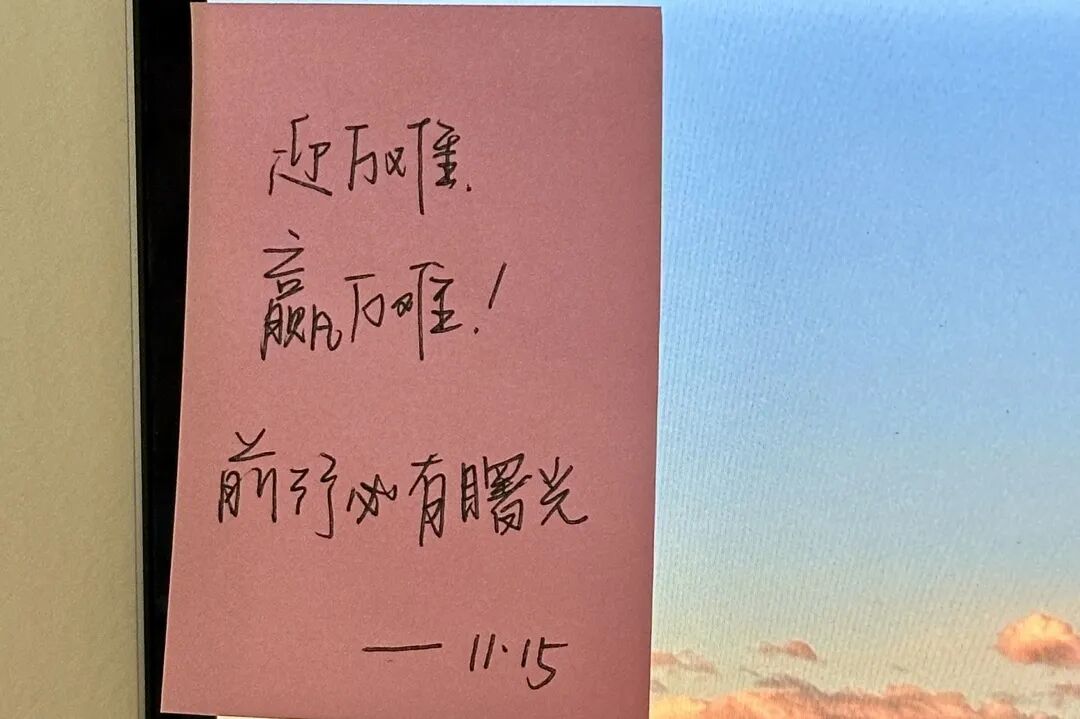 迎万难.
赢万难!
前行必有曙光
— 11.15